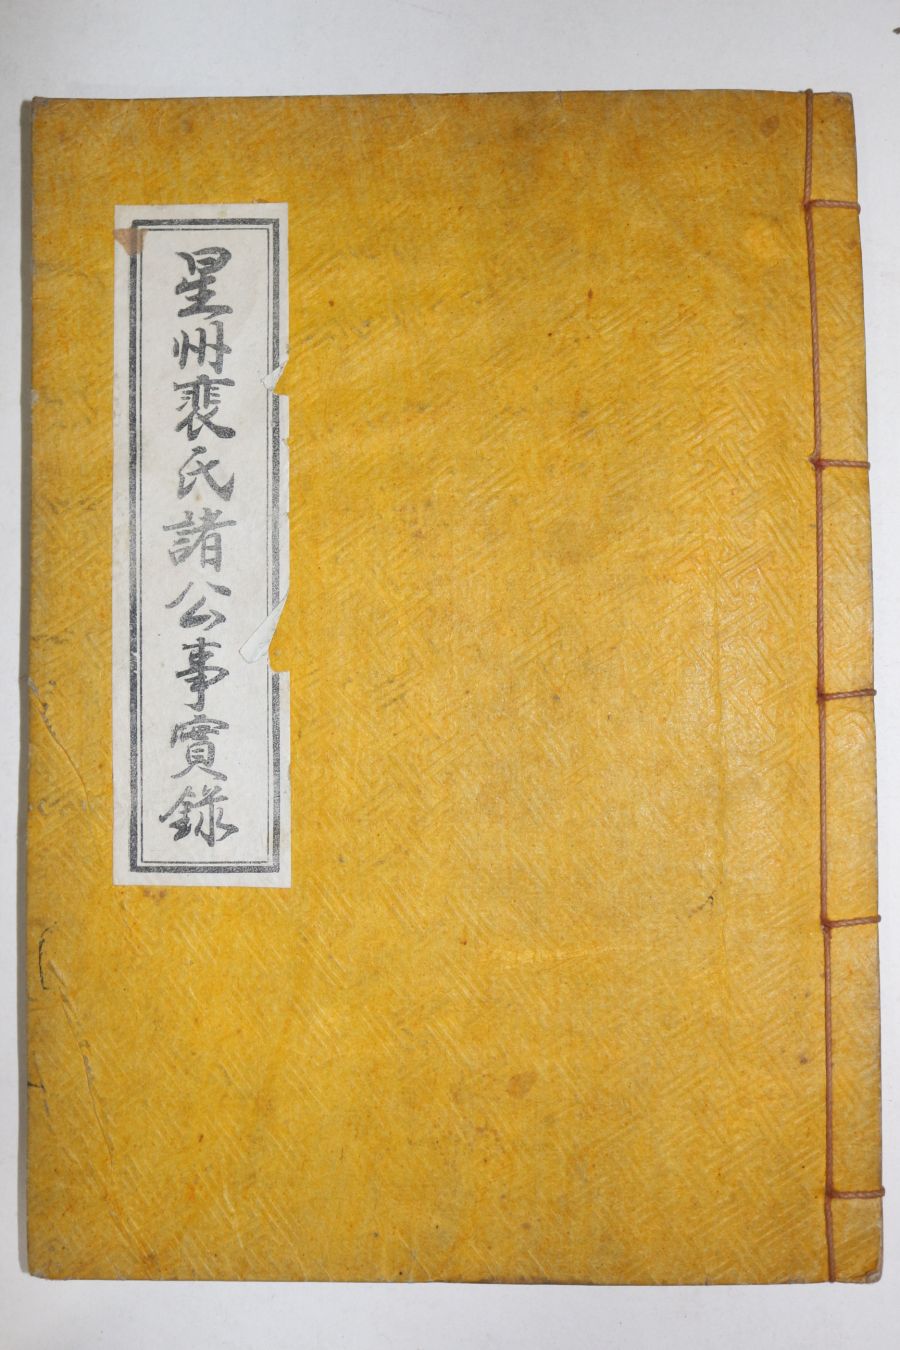 星州裵氏諸公事實錄